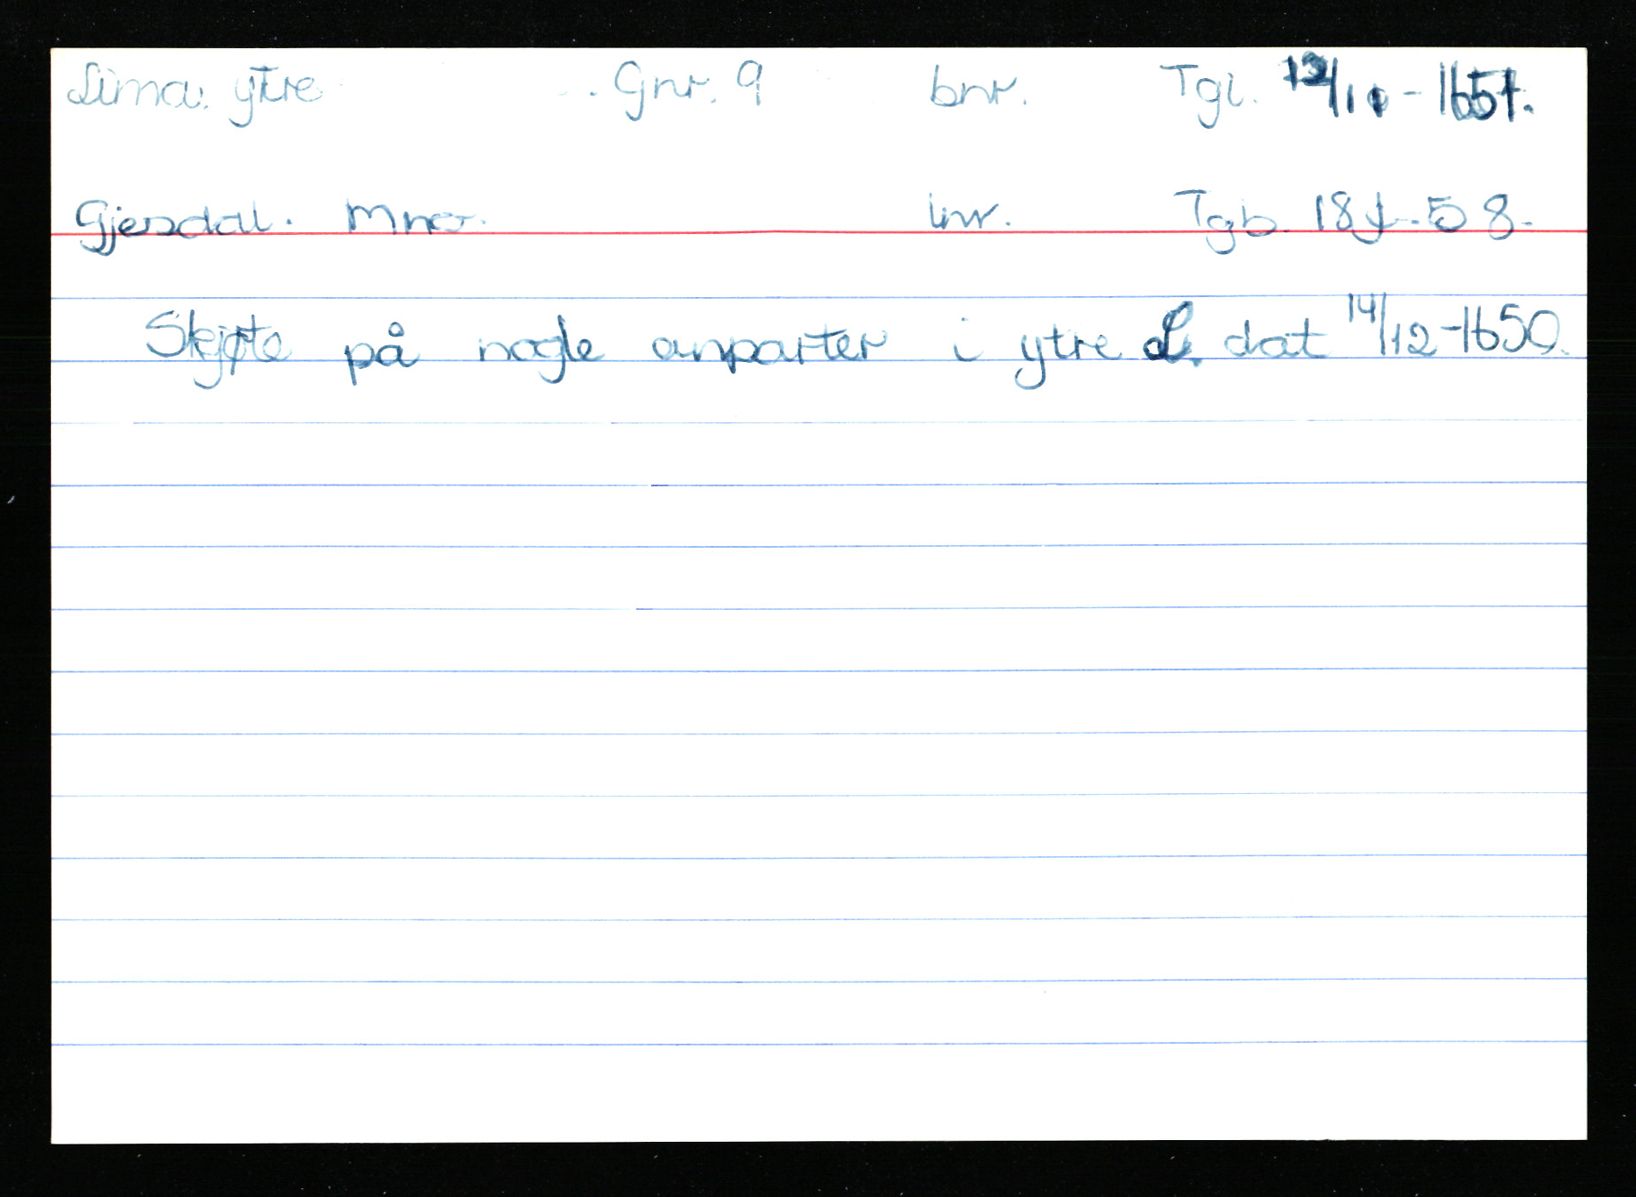 Lima ytre . Gnr. 9 bnr. Tgl. 12/11 - 1651.
Gjesdal. Mno. lnr. Tgb. 58.
Skjøte på nogle anparter i ytre L. dat 14/12-1650.